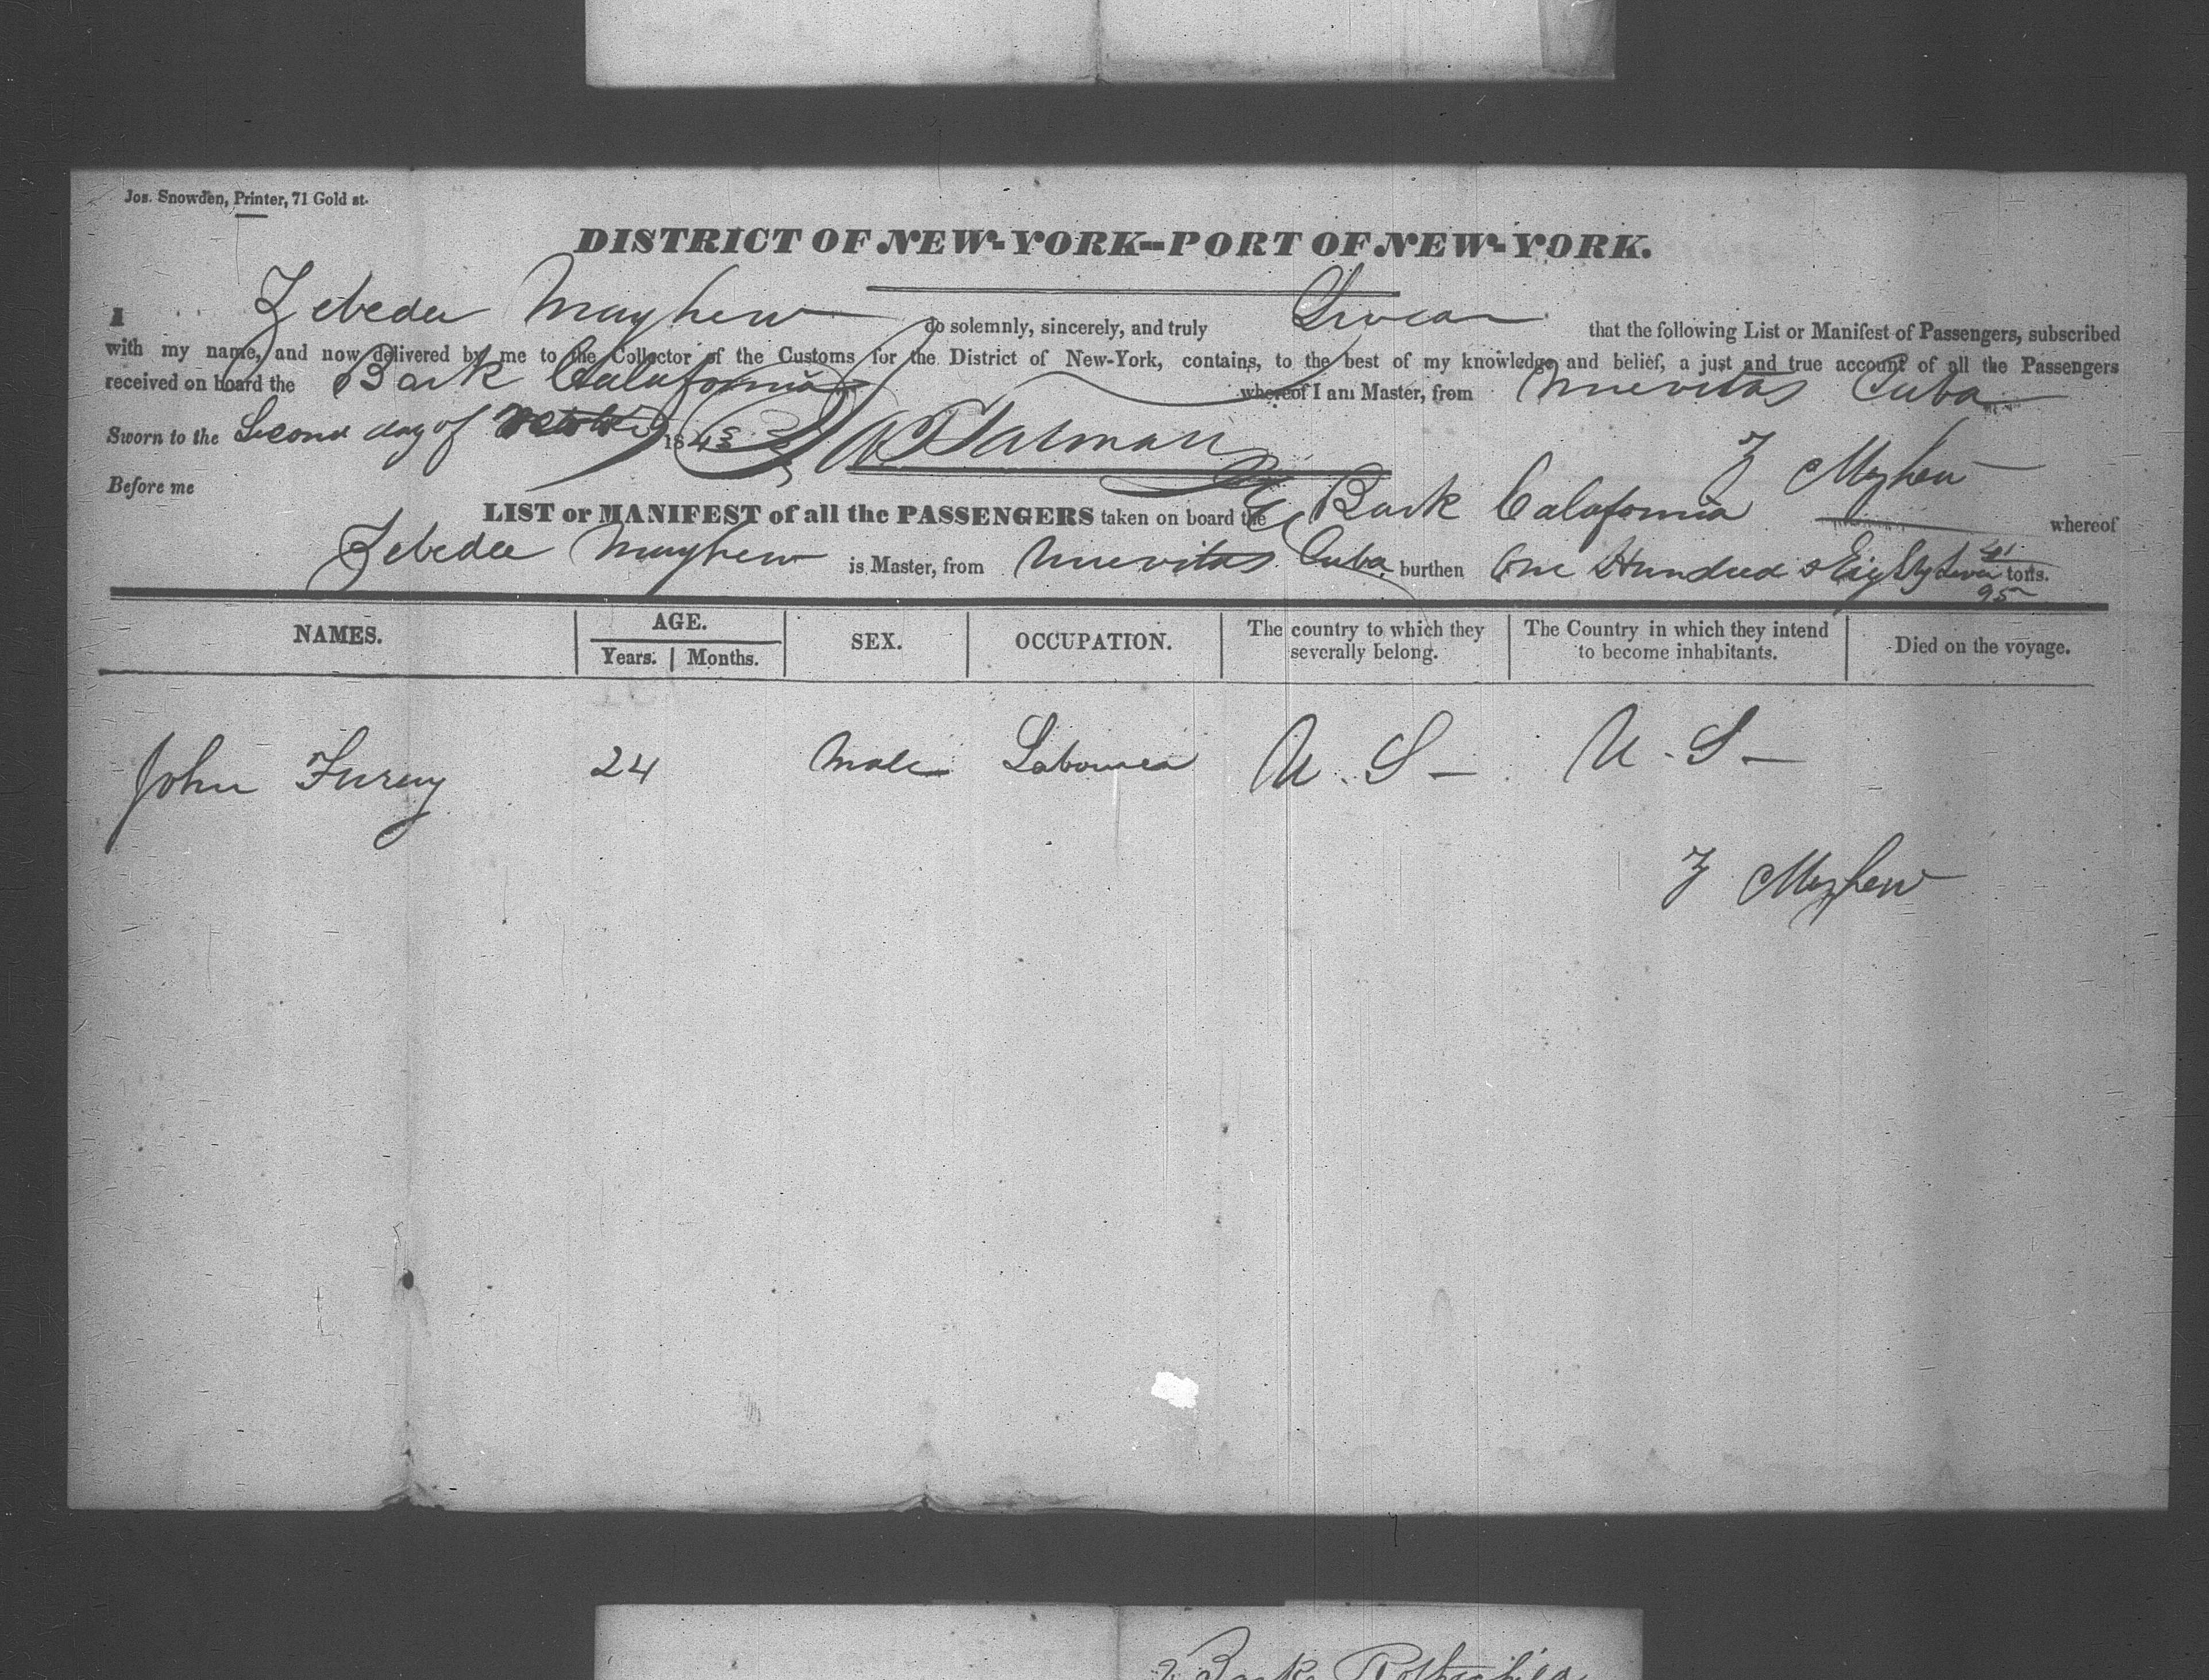 Jos. Snowden, Printer, 71 Gold st.
DISTRICT OF NEW-YORK--PORT OF NEW-YORK.
I Zebedee Mayhew do solemnly, sincerely, and truly Swear that the following List or Manifest of Passengers, subscribed
with my name, and now delivered by me to the Collector of the Customs for the District of New-York, contains, to the best of my knowledge and belief, a just and true account of all the Passengers
received on board the Bark Calafornia whereof I am Master, from Nuevitas Cuba
Sworn to the Second day of 184
Z Mayhew
Before me
LIST or MANIFEST of all the PASSENGERS taken on board the Bark Calafornia whereof
Zebedee Mayhew is Master, from Nuevitas Cuba burthen One Hundred & Eighty Seven 41/95 tons.
NAMES. AGE. SEX. OCCUPATION. The country to which they severally belong. The Country in which they intend to become inhabitants. Died on the voyage.
Years. Months.
John Furey 24 Male Labourer U.S- U.S-
Z Mayhew
Bark